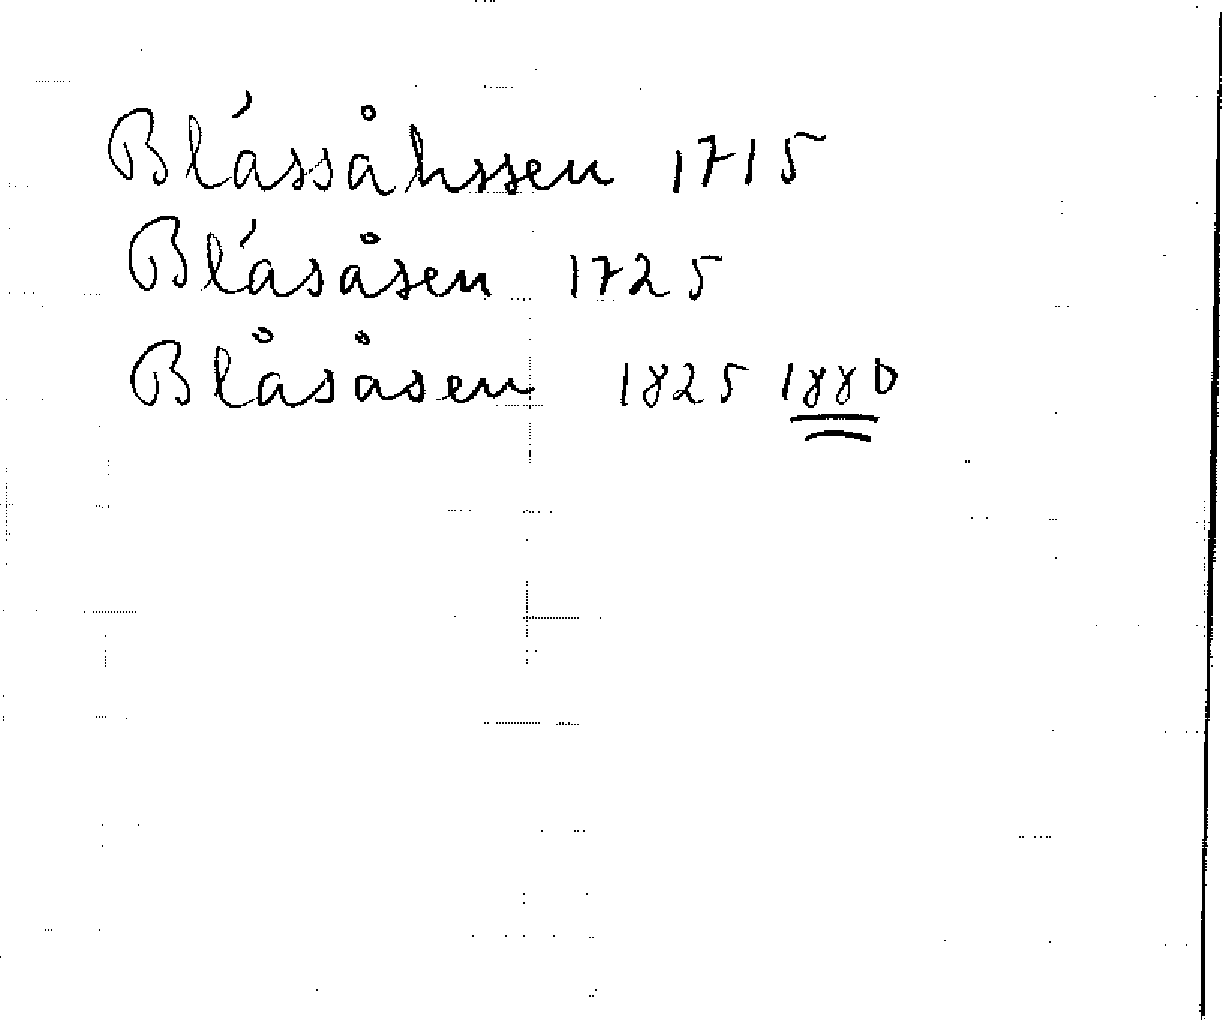 Blássåhssen 1715
Blásåsen 1725
Blåsåsen 1825 1880